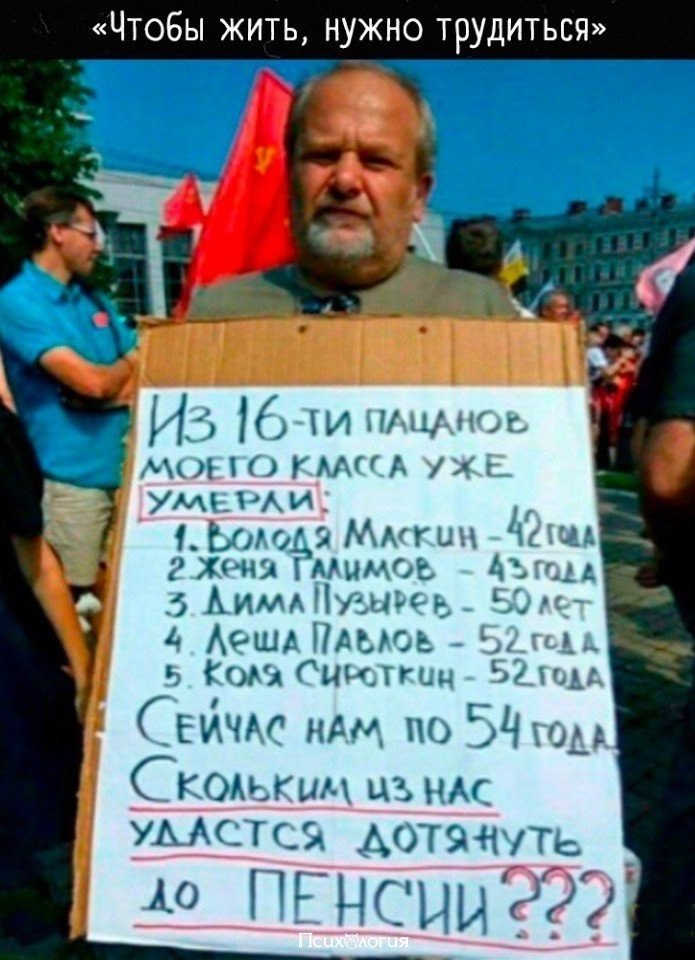 «Чтобы жить, нужно трудиться»
Из 16-ти пацанов
моего класса уже
умерли:
1. Володя Маскин - 42 года
2. Женя Галимов - 43 года
3. Дима Пузырев - 50 лет
4. Леша Павлов - 52 года
5. Коля Сироткин - 52 года
Сейчас нам по 54 года
Скольким из нас
удастся дотянуть
до ПЕНСИИ???
Психология